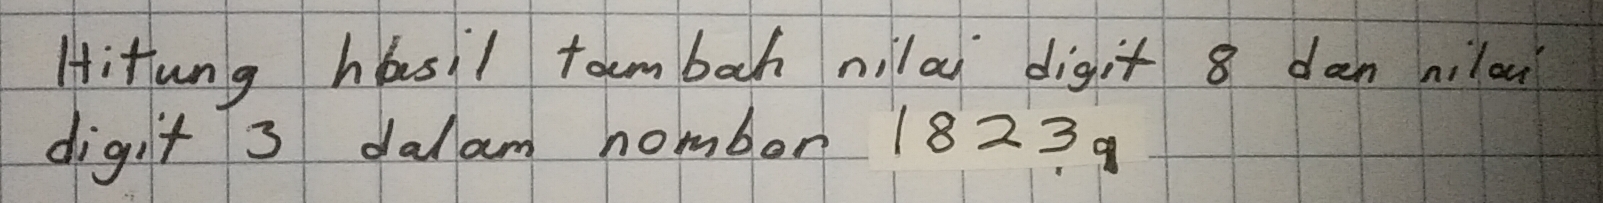 Hitung hasil tambah nilai digit 8 dan nilai
digit 3 dalam nombor 18239